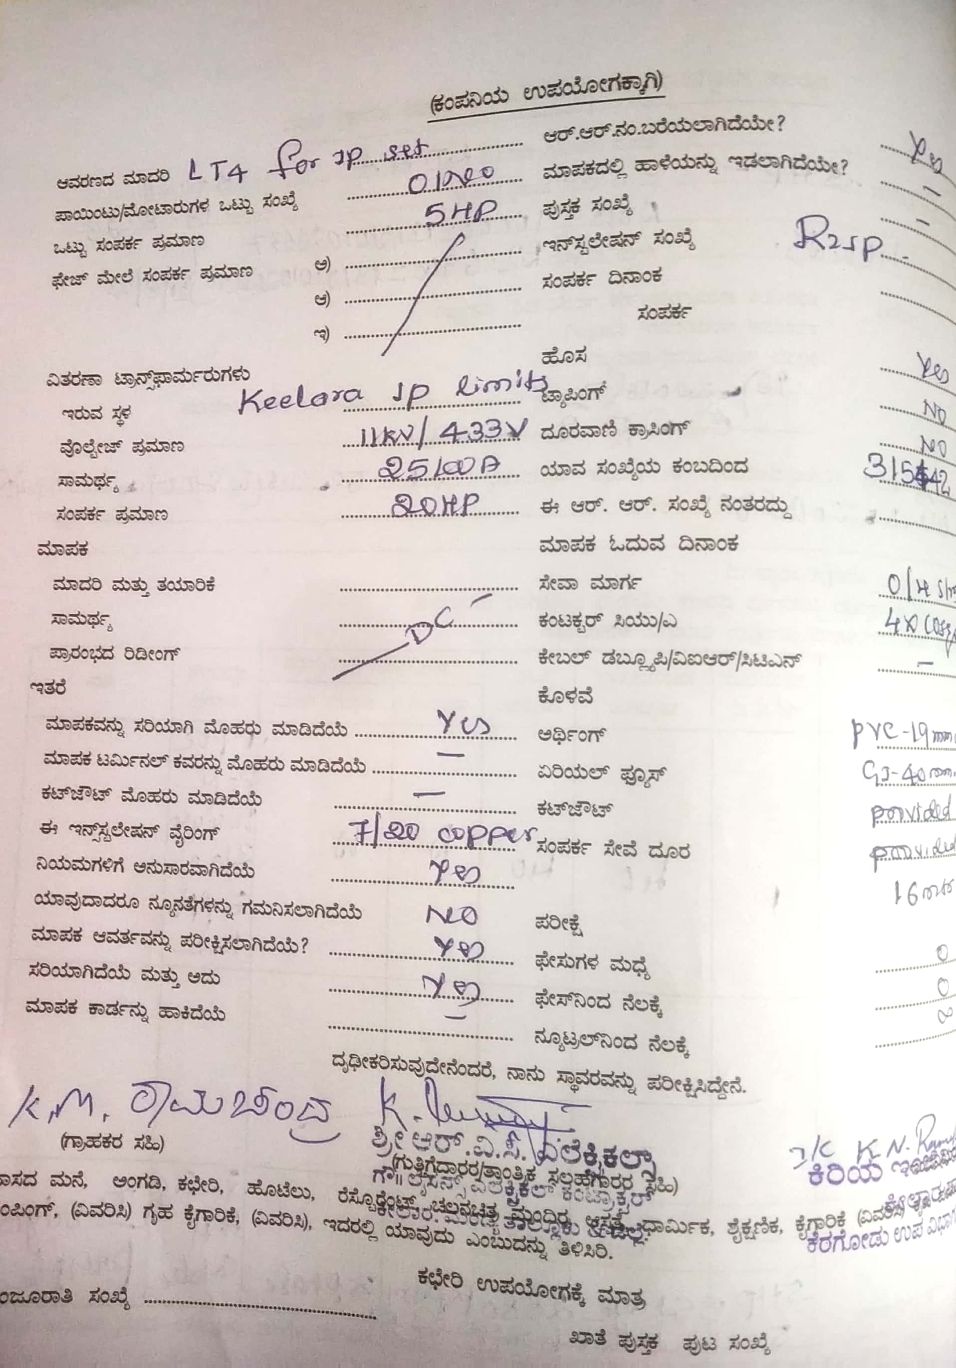 (ಕಂಪನಿಯ ಉಪಯೋಗಕ್ಕಾಗಿ)
ಆವರಣದ ಮಾದರಿ LT4 for IP set ಆರ್.ಆರ್.ನಂ.ಬರೆಯಲಾಗಿದೆಯೇ? Yes
ಪಾಯಿಂಟು/ಮೋಟಾರುಗಳ ಒಟ್ಟು ಸಂಖ್ಯೆ ಮಾಪಕದಲ್ಲಿ ಹಾಳೆಯನ್ನು ಇಡಲಾಗಿದೆಯೇ? –
ಒಟ್ಟು ಸಂಪರ್ಕ ಪ್ರಮಾಣ 5HP ಪುಸ್ತಕ ಸಂಖ್ಯೆ –
ಫೇಜ್ ಮೇಲೆ ಸಂಪರ್ಕ ಪ್ರಮಾಣ ಅ) ಇನ್‌ಸ್ಟಲೇಷನ್ ಸಂಖ್ಯೆ
ಆ) ಸಂಪರ್ಕ ದಿನಾಂಕ
ಇ) ಸಂಪರ್ಕ
ವಿತರಣಾ ಟ್ರಾನ್ಸ್‌ಫಾರ್ಮರುಗಳು ಹೊಸ Yes
ಇರುವ ಸ್ಥಳ Keelara IP limits ಟ್ಯಾಪಿಂಗ್ NO
ವೊಲ್ಟೇಜ್ ಪ್ರಮಾಣ 11KV/433V ದೂರವಾಣಿ ಕ್ರಾಸಿಂಗ್ NO
ಸಾಮರ್ಥ್ಯ ಯಾವ ಸಂಖ್ಯೆಯ ಕಂಬದಿಂದ
ಸಂಪರ್ಕ ಪ್ರಮಾಣ 20HP ಈ ಆರ್. ಆರ್. ಸಂಖ್ಯೆ ನಂತರದ್ದು
ಮಾಪಕ ಮಾಪಕ ಓದುವ ದಿನಾಂಕ
ಮಾದರಿ ಮತ್ತು ತಯಾರಿಕೆ ಸೇವಾ ಮಾರ್ಗ
ಸಾಮರ್ಥ್ಯ DC ಕಂಟಕ್ಟರ್ ಸಿಯು/ಎ
ಪ್ರಾರಂಭದ ರಿಡೀಂಗ್ ಕೇಬಲ್ ಡಬ್ಲ್ಯೂಪಿ/ವಿಐಆರ್/ಸಿಟಿಎನ್ –
ಇತರೆ ಕೊಳವೆ PVC-19mm
ಮಾಪಕವನ್ನು ಸರಿಯಾಗಿ ಮೊಹರು ಮಾಡಿದೆಯೆ Yes ಅರ್ಥಿಂಗ್ GI-40mm
ಮಾಪಕ ಟರ್ಮಿನಲ್ ಕವರನ್ನು ಮೊಹರು ಮಾಡಿದೆಯೆ – ಏರಿಯಲ್ ಫ್ಯೂಸ್ provided
ಕಟ್‌ಜೌಟ್ ಮೊಹರು ಮಾಡಿದೆಯೆ – ಕಟ್‌ಜೌಟ್ provided
ಈ ಇನ್ಸ್‌ಸ್ಟಲೇಷನ್ ವೈರಿಂಗ್ 7/20 copper ಸಂಪರ್ಕ ಸೇವೆ ದೂರ
ನಿಯಮಗಳಿಗೆ ಅನುಸಾರವಾಗಿದೆಯೆ Yes
ಯಾವುದಾದರೂ ನ್ಯೂನತೆಗಳನ್ನು ಗಮನಿಸಲಾಗಿದೆಯೆ NO ಪರೀಕ್ಷೆ
ಮಾಪಕ ಆವರ್ತವನ್ನು ಪರೀಕ್ಷಿಸಲಾಗಿದೆಯೆ? Yes ಫೇಸುಗಳ ಮಧ್ಯೆ 0
ಸರಿಯಾಗಿದೆಯೆ ಮತ್ತು ಅದು Yes ಫೇಸ್‌ನಿಂದ ನೆಲಕ್ಕೆ 0
ಮಾಪಕ ಕಾರ್ಡನ್ನು ಹಾಕಿದೆಯೆ – ನ್ಯೂಟ್ರಲ್‌ನಿಂದ ನೆಲಕ್ಕೆ
ದೃಢೀಕರಿಸುವುದೇನೆಂದರೆ, ನಾನು ಸ್ಥಾವರವನ್ನು ಪರೀಕ್ಷಿಸಿದ್ದೇನೆ.
K.M. ರಾಮಚಂದ್ರ
(ಗ್ರಾಹಕರ ಸಹಿ) ಶ್ರೀ ಆರ್.ವಿ.ಸಿ. ಎಲೆಕ್ಟ್ರಿಕಲ್ಸ್
(ಗುತ್ತಿಗೆದಾರರ/ತಾಂತ್ರಿಕ ಸಲಹೆಗಾರರ ಸಹಿ) ಕಿರಿಯ
ವಾಸದ ಮನೆ, ಅಂಗಡಿ, ಕಛೇರಿ, ಹೊಟೆಲು, ರೆಸ್ಟೊರೆಂಟ್, ಚಲನಚಿತ್ರ ಮಂದಿರ, ಆಸ್ಪತ್ರೆ, ಧಾರ್ಮಿಕ, ಶೈಕ್ಷಣಿಕ, ಕೈಗಾರಿಕೆ (ವಿವರಿಸಿ)
ಪಂಪಿಂಗ್, (ವಿವರಿಸಿ) ಗೃಹ ಕೈಗಾರಿಕೆ, (ವಿವರಿಸಿ), ಇದರಲ್ಲಿ ಯಾವುದು ಎಂಬುದನ್ನು ತಿಳಿಸಿರಿ. ಕೆರಗೋಡು ಉಪ ವಿಭಾಗ
ಕಛೇರಿ ಉಪಯೋಗಕ್ಕೆ ಮಾತ್ರ
ಮಂಜೂರಾತಿ ಸಂಖ್ಯೆ
ಖಾತೆ ಪುಸ್ತಕ ಪುಟ ಸಂಖ್ಯೆ